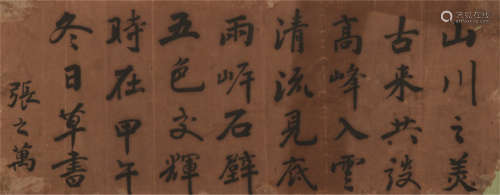 山川之美
古来共談
高峰入雲
清流見底
兩岸石壁
五色交輝
時在甲午
冬日草書
張之萬